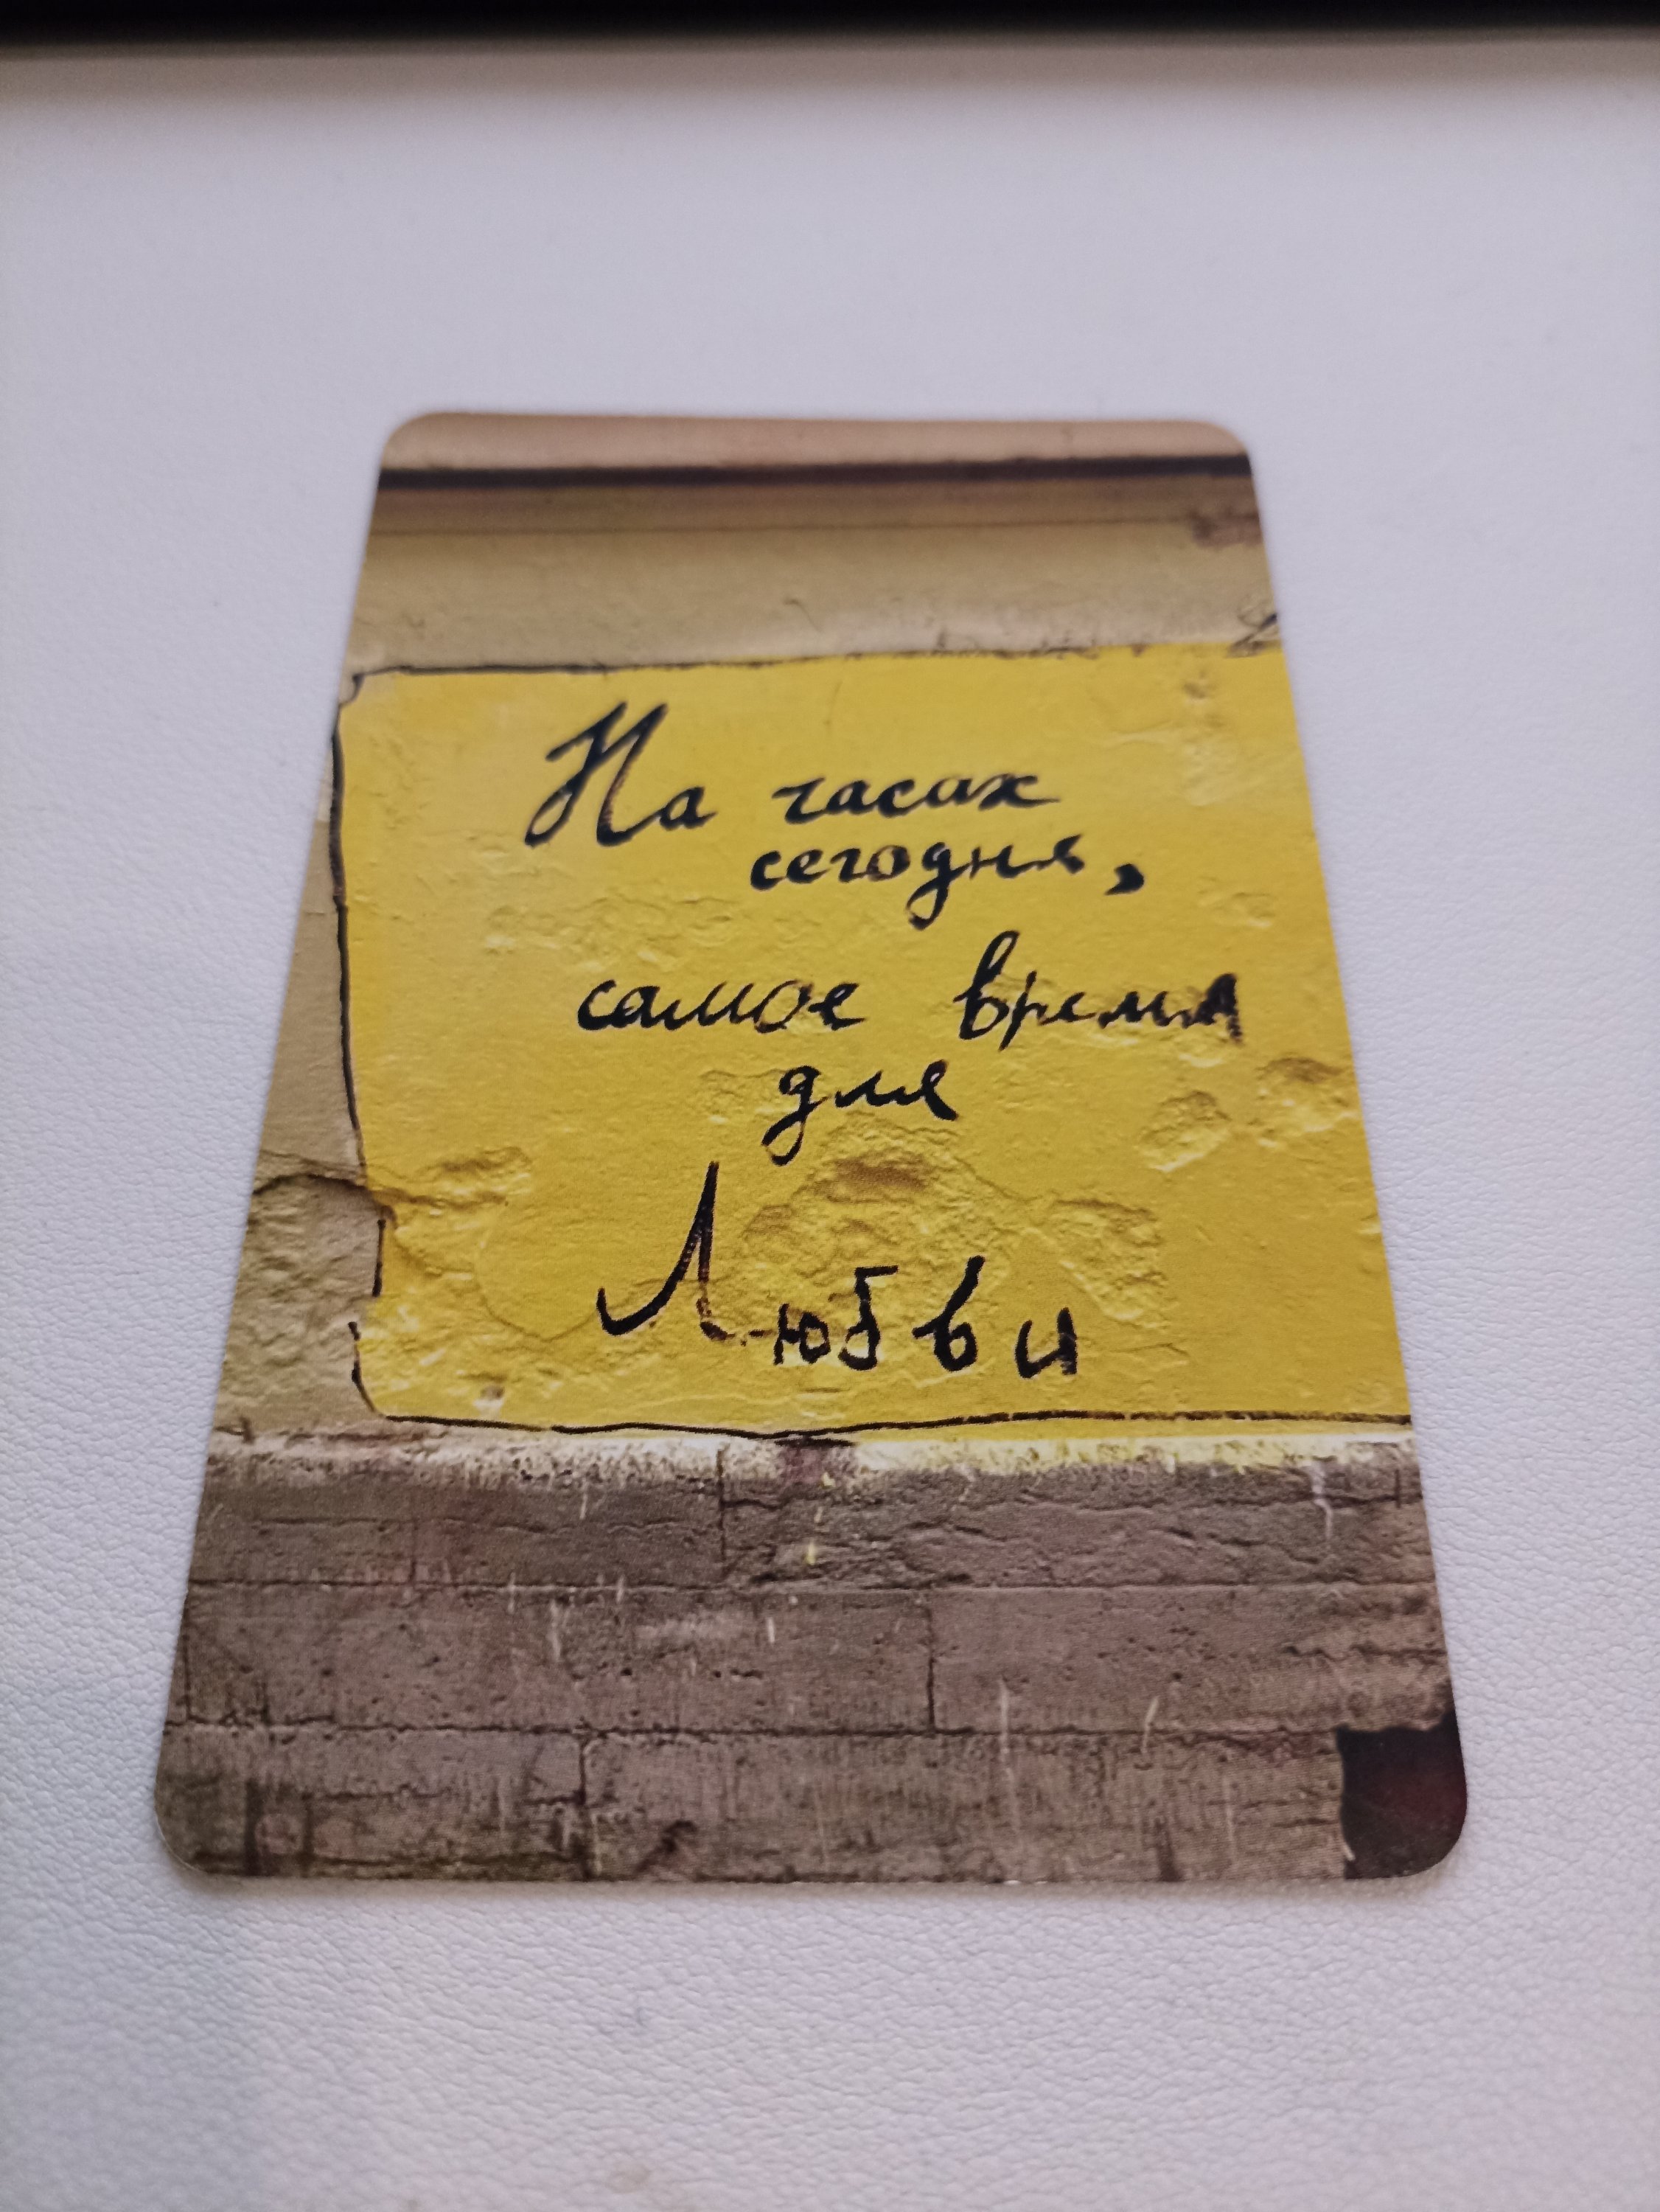 На часах
сегодня,
самое время
для
Любви